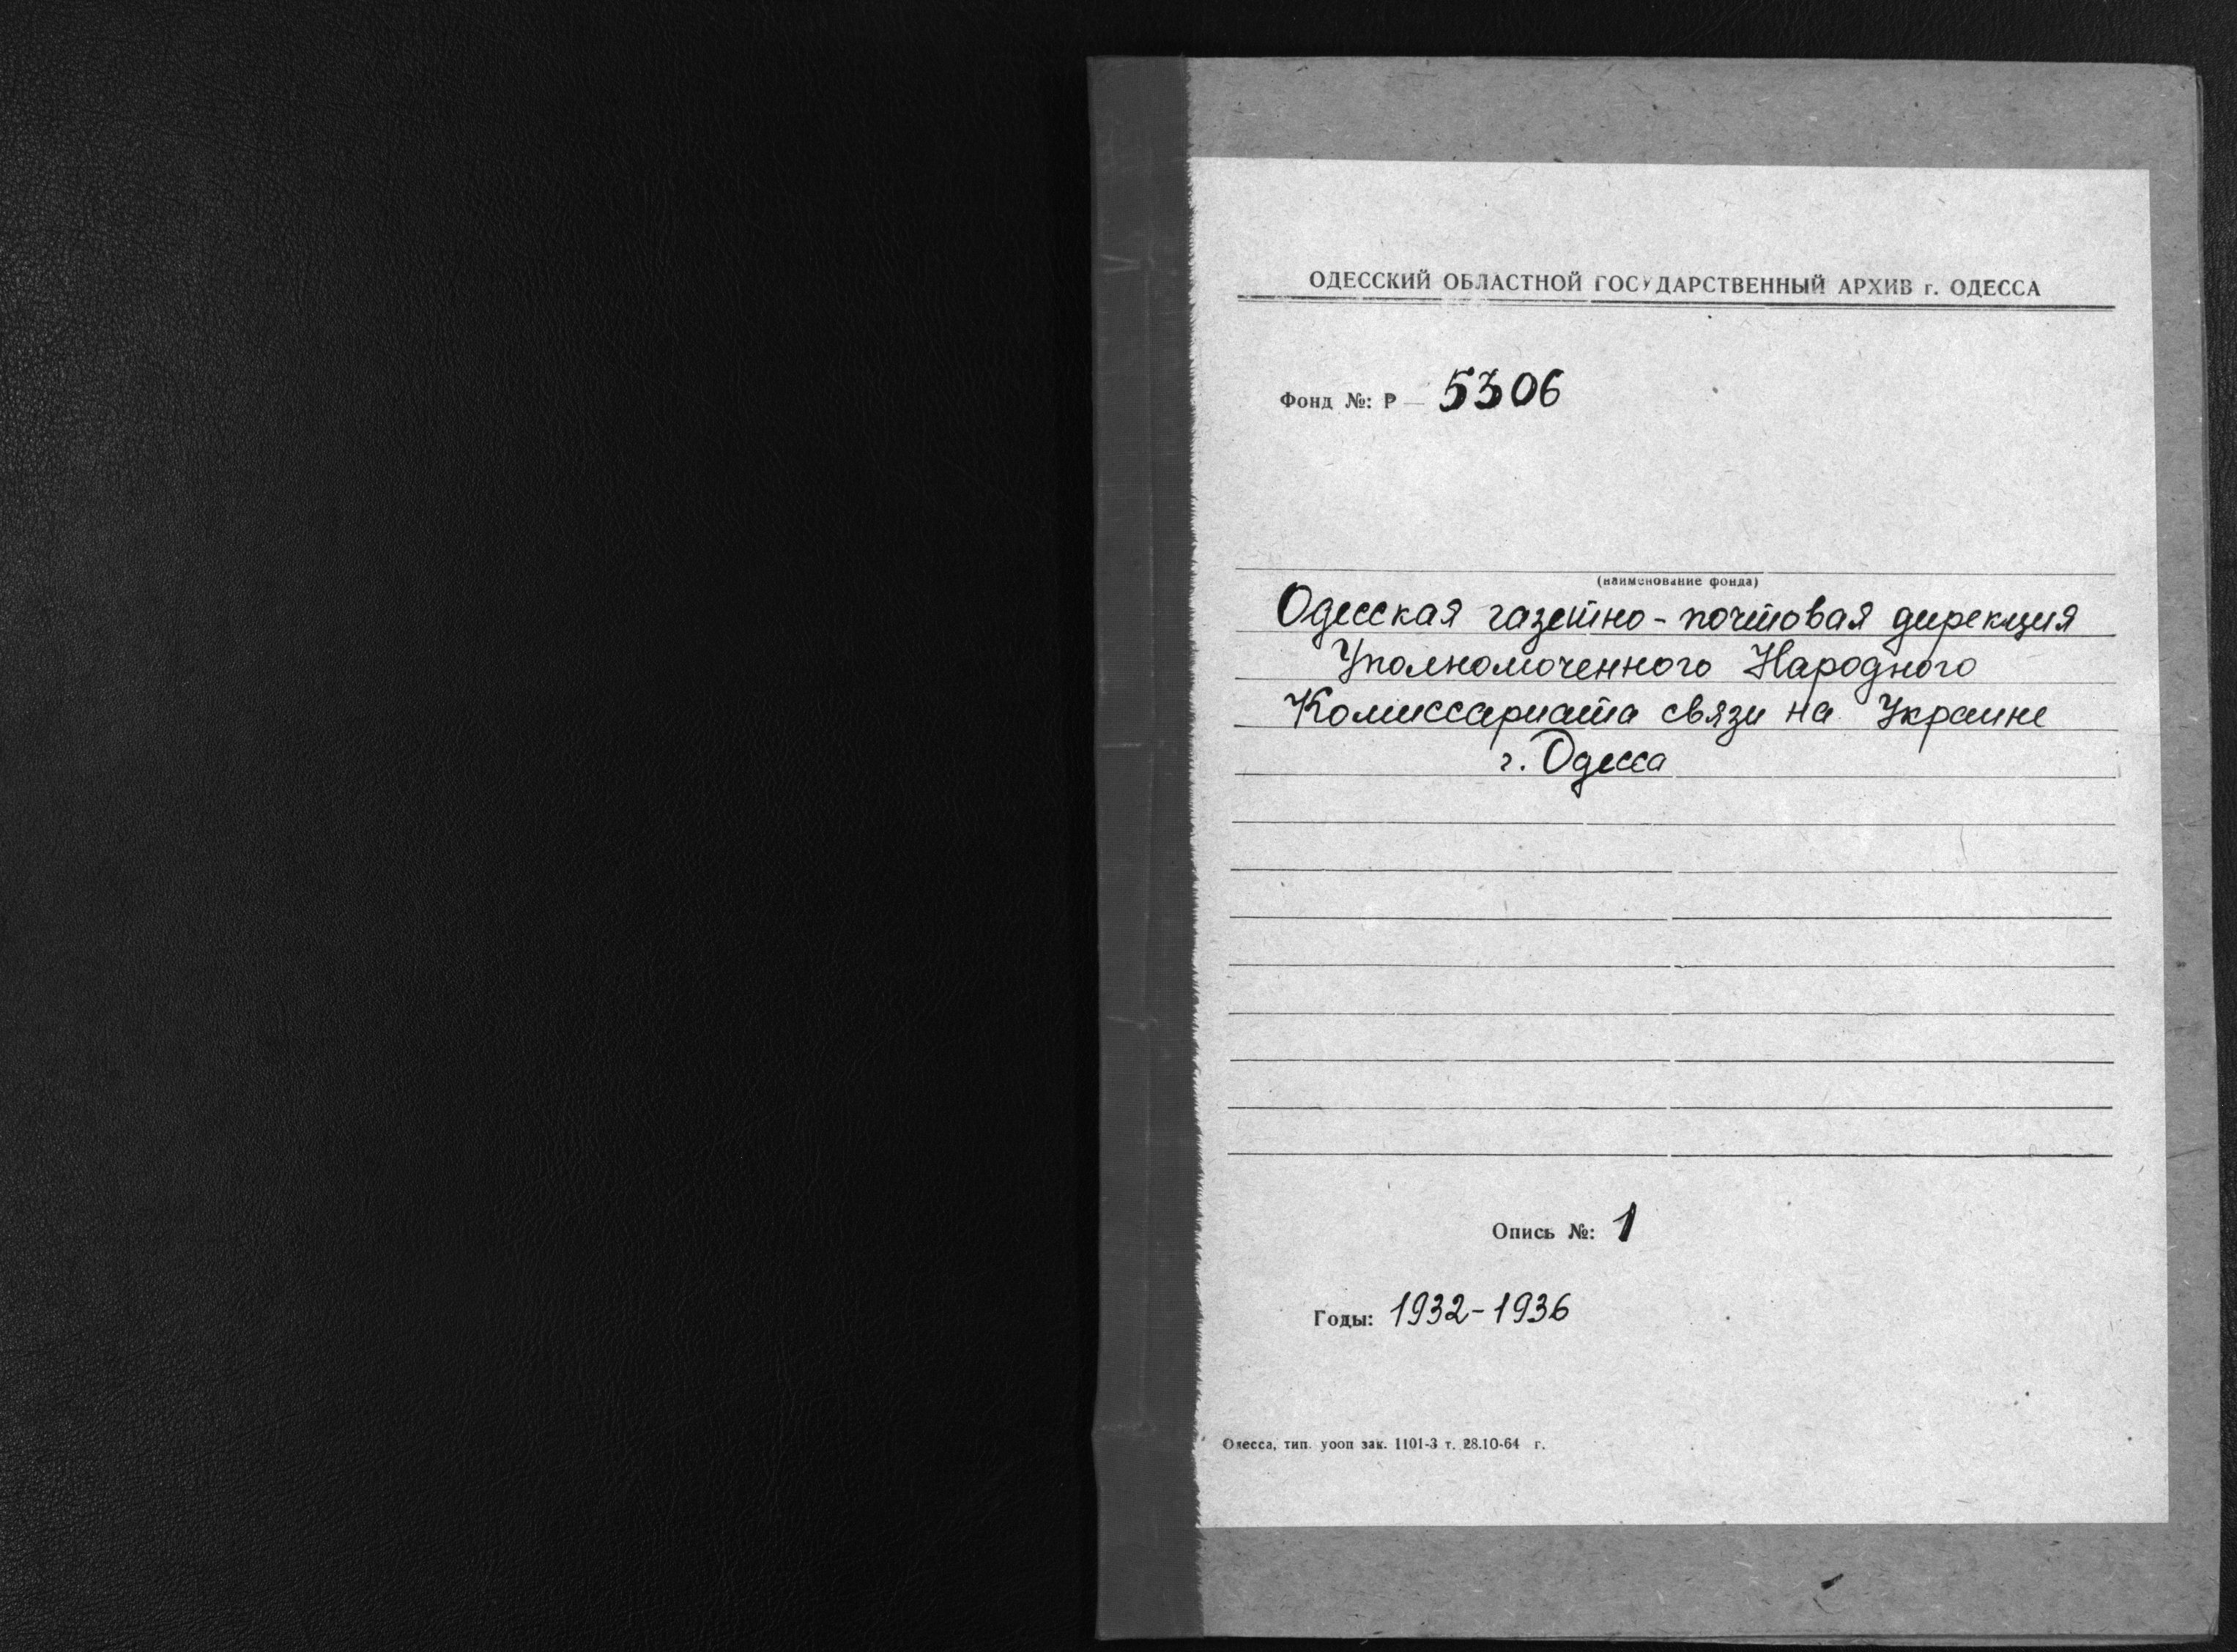 ОДЕССКИЙ ОБЛАСТНОЙ ГОСУДАРСТВЕННЫЙ АРХИВ г. ОДЕССА
Фонд №: Р — 5306
(наименование фонда)
Одесская газетно-почтовая дирекция
Уполномоченного Народного
Комиссариата связи на Украине
г. Одесса
Опись №: 1
Годы: 1932-1936
Одесса, тип. уооп зак. 1101-3 т. 28.10-64 г.